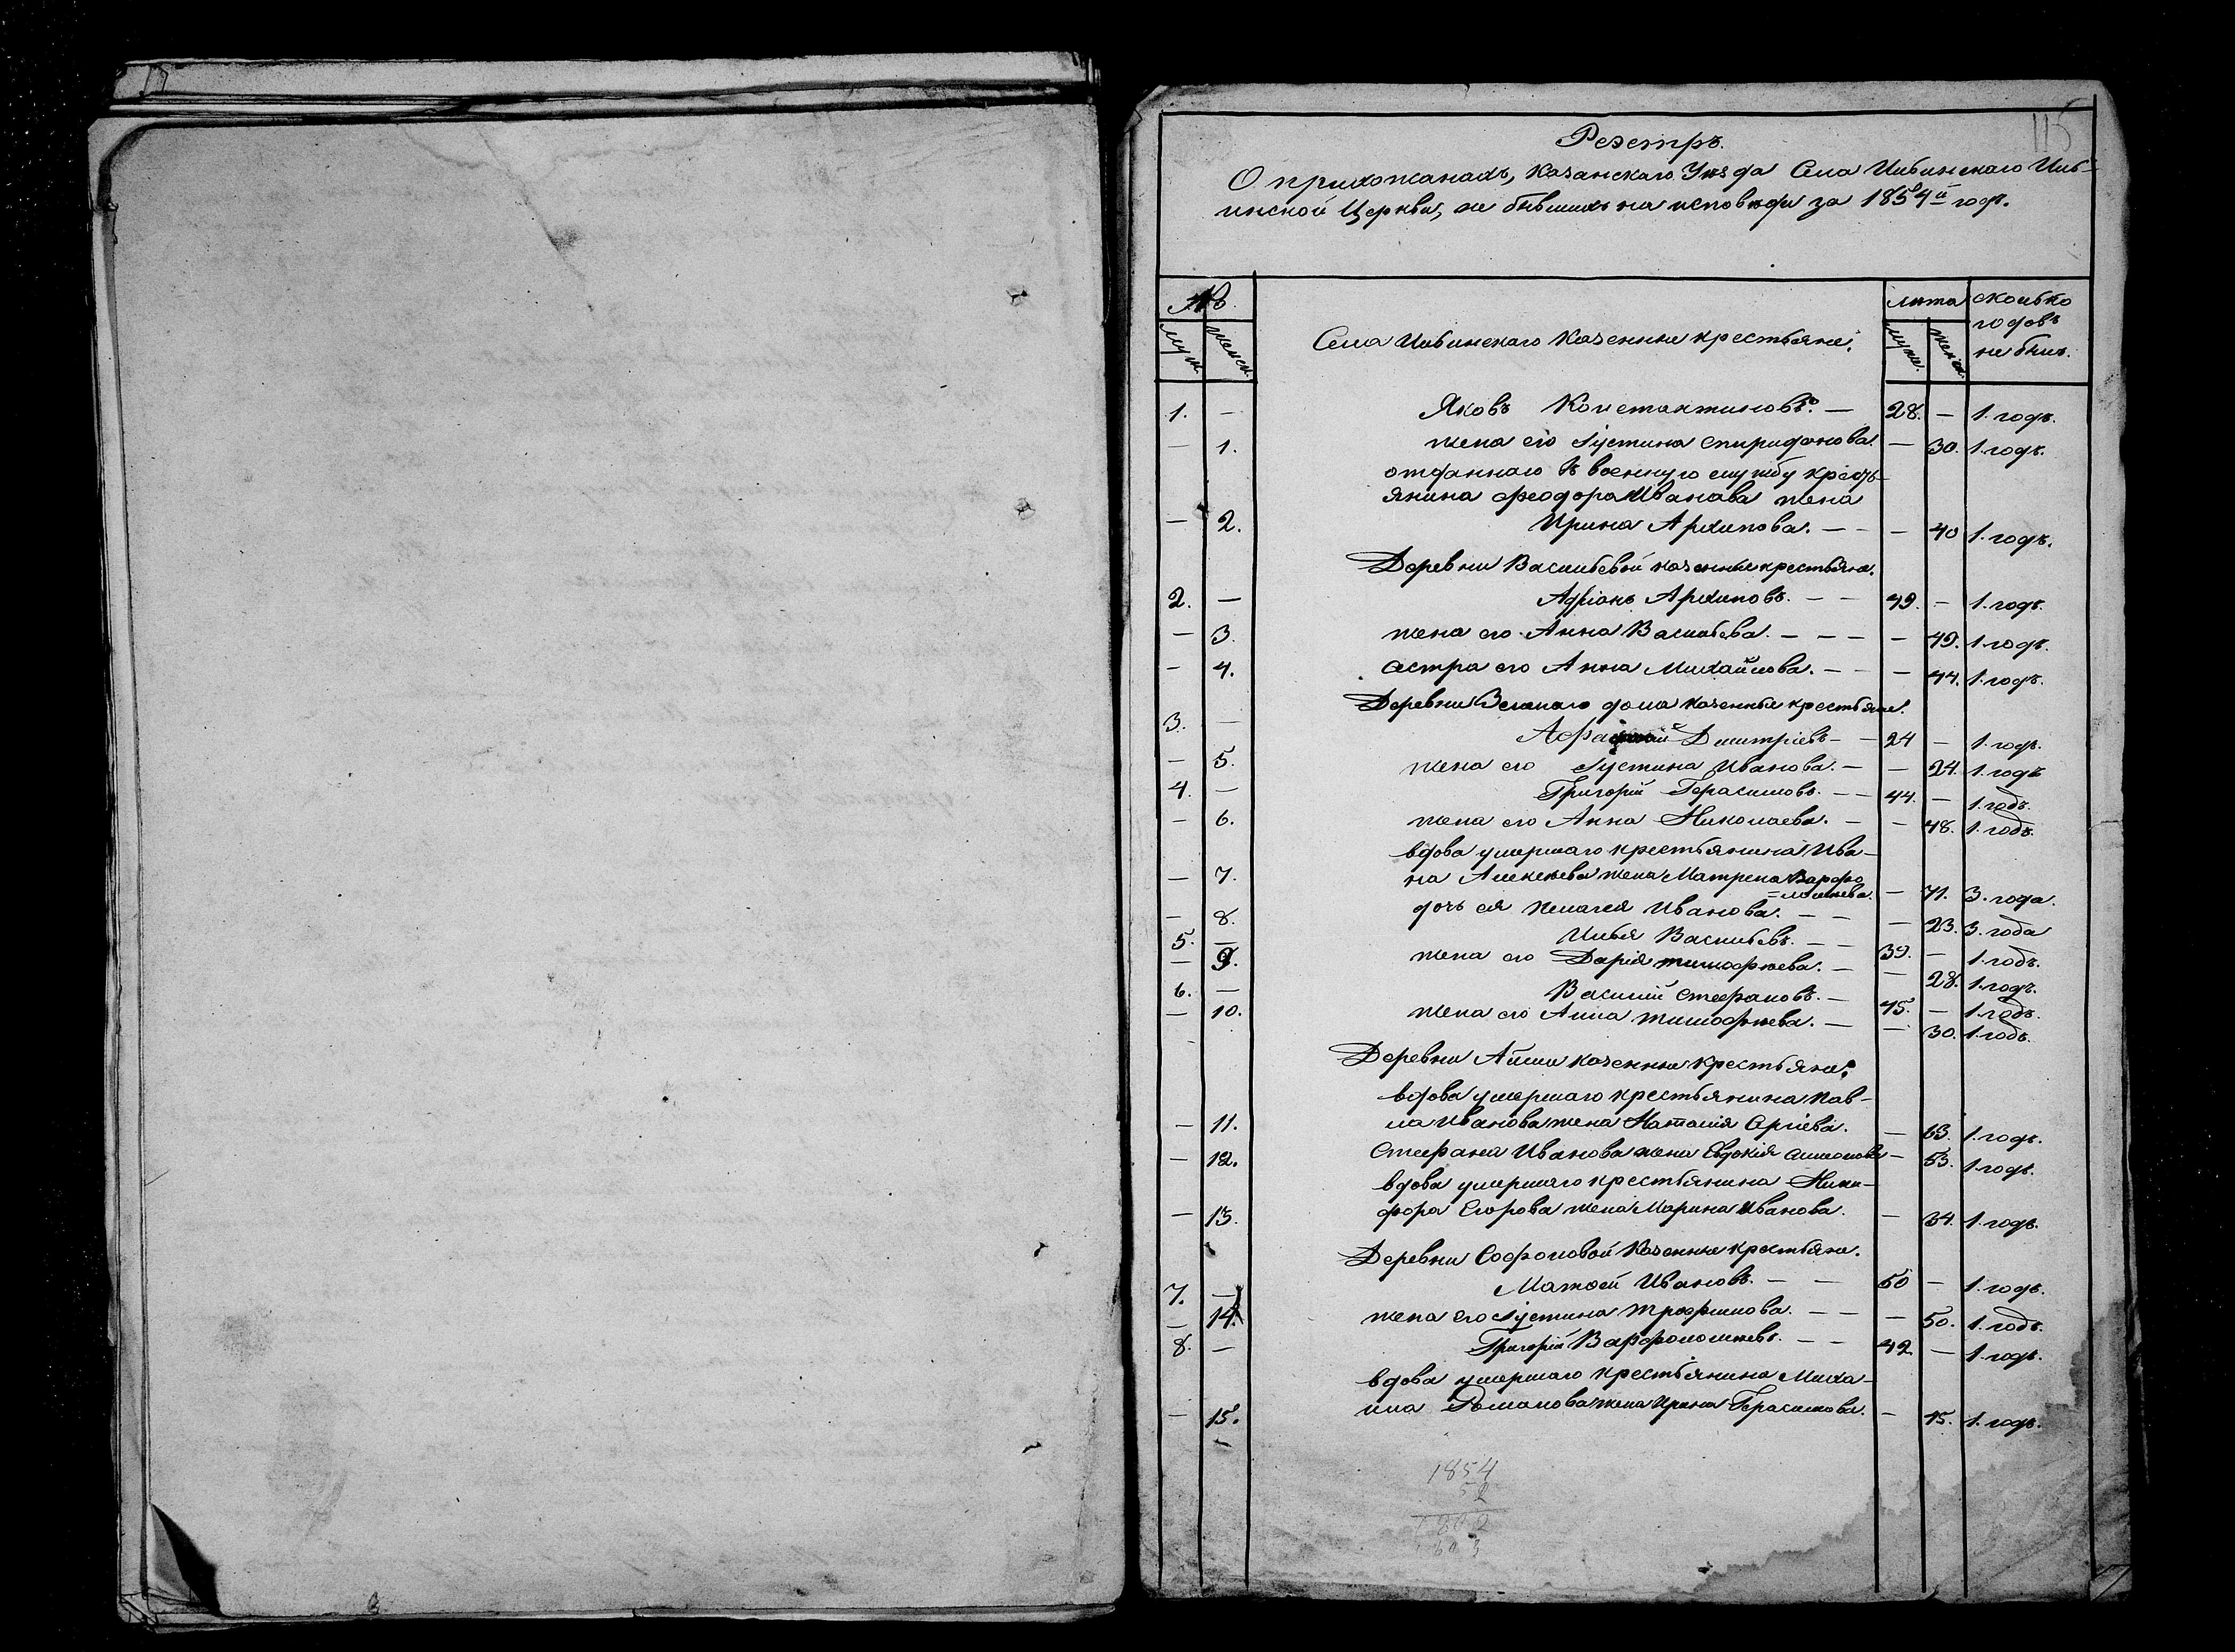 115
Реэстръ.
О прихожанахъ, Казанскаго Уѣзда Села Ильинскаго Иль-
инской Церкви, не бывшихъ на исповѣди за 1854й годъ.
№
муж. женск.
Села Ильинскаго Казенные крестьяне.
лѣта
муже. женск.
сколько
годовъ
не былъ.
1. — Яковъ Константиновъ. — 28. — 1. годъ.
— 1. жена его Іустина Спиридонова. — 30. 1. годъ.
отданнаго въ военную службу кресть-
янина Феодора Иванова жена
— 2. Ирина Архипова. — — 40 1. годъ.
Деревни Васильевой казенные крестьяне.
2. — Адріанъ Архиповъ. — — 49. — 1. годъ.
— 3. жена его Анна Васильева. — — — — 49. 1. годъ.
— 4. сестра его Анна Михайлова. — — 44. 1. годъ.
Деревни Белаго дома казенные крестьяне.
3. — Дмитріевъ — 24 — 1. годъ.
— 5. жена его Іустина Иванова. — — 24. 1. годъ
4. — Григорій Герасимовъ. — — 44. — 1. годъ.
— 6. жена его Анна Николаева. — — 48. 1. годъ.
вдова умершаго крестьянина Ива-
— 7. на Алексѣева жена Матрена Варфо
=ломѣева. — 71. 3. года.
— 8. дочь ея Пелагея Иванова. — — — 23. 3. года
5. — Илья Васильевъ. — — 39. — 1. годъ.
— 9. жена его Дарія тимофѣева. — — 28. 1. годъ.
6. — Василій Стефановъ. — 45. — 1. годъ.
— 10. жена его Анна тимофѣева. — — 30. 1. годъ.
Деревни Айши казенные крестьяне.
вдова умершаго крестьянина Пав-
— 11. ла Иванова жена Наталія Сргіева. — 63. 1. годъ.
— 12. Стефана Иванова жена Евдокія Симонова — 53. 1. годъ.
вдова умершаго крестьянина Ники-
— 13. фора Егорова жена Марина Иванова. — 34. 1. годъ.
Деревни Софоновой Казенные крестьяне.
7. — Матѳей Ивановъ. — — 50 — 1. годъ.
— 14. жена его Іустина Трофимова. — — — 50. 1. годъ.
8. — Григорій Варфоломѣевъ. — — 42. — 1. годъ.
вдова умершаго крестьянина Миха-
— 15. ила Романова жена Ирина Герасимова. — 45. 1. годъ.
1854
52
1802